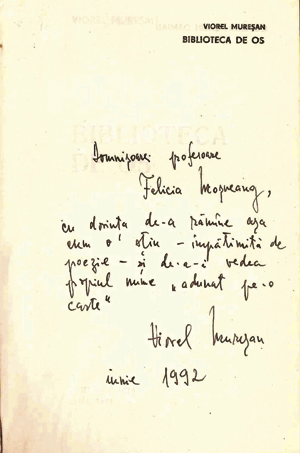 VIOREL MUREȘAN
BIBLIOTECA DE OS
Domnișoarei profesoare
Felicia
cu dorința de-a rămîne așa
cum o știu - împătimită de
poezie - și de-a-i vedea
propriul nume „adunat pe-o
carte"
Viorel Mureșan
iunie 1992